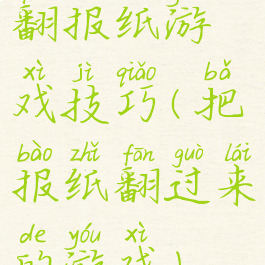 翻报纸游
xì jì qiǎo bǎ
戏技巧(把
bào zhǐ fān guò lái
报纸翻过来
de yóu xì
的游戏)